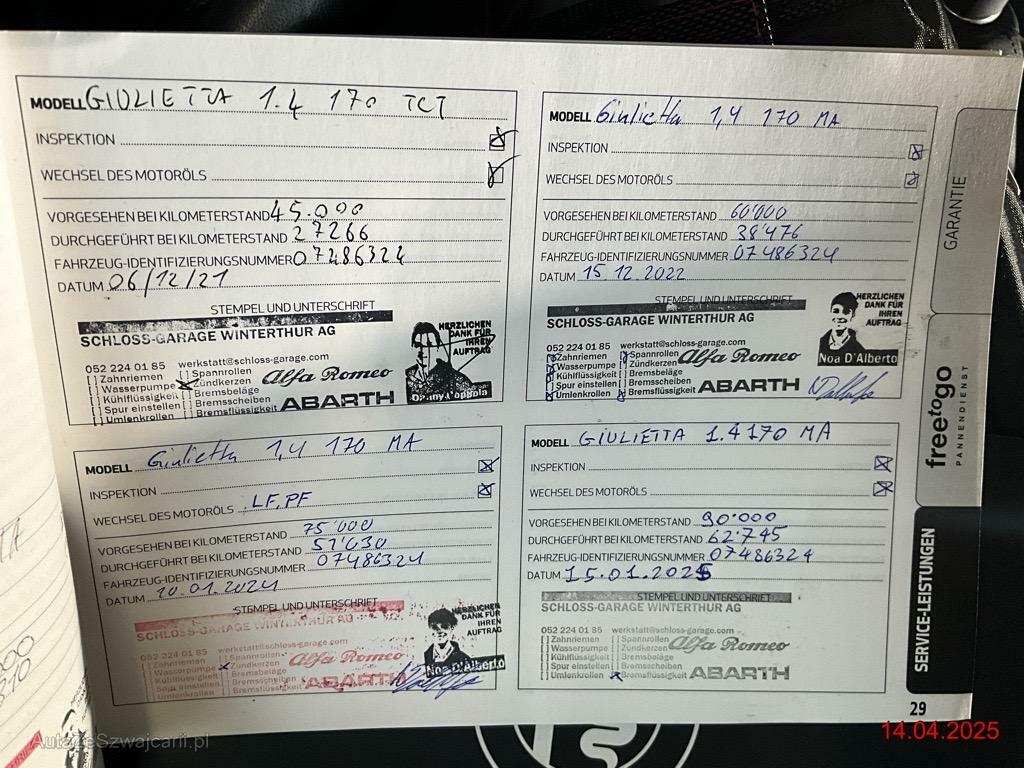 MODELL GIULIETTA 1.4 170 TCT
INSPEKTION
WECHSEL DES MOTORÖLS
VORGESEHEN BEI KILOMETERSTAND 45.000
DURCHGEFÜHRT BEI KILOMETERSTAND 27266
FAHRZEUG-IDENTIFIZIERUNGSNUMMER 07486324
DATUM 06/12/21
STEMPEL UND UNTERSCHRIFT
SCHLOSS-GARAGE WINTERTHUR AG
HERZLICHEN DANK FÜR IHREN AUFTRAG
052 224 01 85 werkstatt@schloss-garage.com
[ ] Zahnriemen [ ] Spannrollen
[ ] Wasserpumpe Zündkerzen Alfa Romeo
[ ] Kühlflüssigkeit [ ] Bremsbeläge
[ ] Spur einstellen [ ] Bremsscheiben
[ ] Umlenkrollen [ ] Bremsflüssigkeit ABARTH
MODELL Giulietta 1,4 170 MA
INSPEKTION
WECHSEL DES MOTORÖLS
VORGESEHEN BEI KILOMETERSTAND 60'000
DURCHGEFÜHRT BEI KILOMETERSTAND 38'476
FAHRZEUG-IDENTIFIZIERUNGSNUMMER 07486324
DATUM 15.12.2022
STEMPEL UND UNTERSCHRIFT
SCHLOSS-GARAGE WINTERTHUR AG
HERZLICHEN DANK FÜR IHREN AUFTRAG
052 224 01 85 werkstatt@schloss-garage.com
Zahnriemen Spannrollen
Wasserpumpe [ ] Zündkerzen Alfa Romeo
Kühlflüssigkeit [ ] Bremsbeläge Noa D'Alberto
[ ] Spur einstellen [ ] Bremsscheiben
Umlenkrollen Bremsflüssigkeit ABARTH
MODELL Giulietta 1,4 170 MA
INSPEKTION
WECHSEL DES MOTORÖLS LF, PF
VORGESEHEN BEI KILOMETERSTAND 75'000
DURCHGEFÜHRT BEI KILOMETERSTAND 51'030
FAHRZEUG-IDENTIFIZIERUNGSNUMMER 07486324
DATUM 10.01.2024
STEMPEL UND UNTERSCHRIFT
SCHLOSS-GARAGE WINTERTHUR AG
HERZLICHEN DANK FÜR IHREN AUFTRAG
052 224 01 85 werkstatt@schloss-garage.com
[ ] Zahnriemen [ ] Spannrollen
[ ] Wasserpumpe Zündkerzen Alfa Romeo
[ ] Kühlflüssigkeit [ ] Bremsbeläge Noa D'Alberto
[ ] Spur einstellen [ ] Bremsscheiben
[ ] Umlenkrollen [ ] Bremsflüssigkeit ABARTH
MODELL GIULIETTA 1.4 170 MA
INSPEKTION
WECHSEL DES MOTORÖLS
VORGESEHEN BEI KILOMETERSTAND 90'000
DURCHGEFÜHRT BEI KILOMETERSTAND 62'745
FAHRZEUG-IDENTIFIZIERUNGSNUMMER 07486324
DATUM 15.01.2025
STEMPEL UND UNTERSCHRIFT
SCHLOSS-GARAGE WINTERTHUR AG
052 224 01 85 werkstatt@schloss-garage.com
[ ] Zahnriemen [ ] Spannrollen
[ ] Wasserpumpe [ ] Zündkerzen Alfa Romeo
[ ] Kühlflüssigkeit [ ] Bremsbeläge
[ ] Spur einstellen [ ] Bremsscheiben
[ ] Umlenkrollen Bremsflüssigkeit ABARTH
GARANTIE
freetogo
PANNENDIENST
SERVICE-LEISTUNGEN
29
14.04.2025
AutazeSzwajcarii.pl